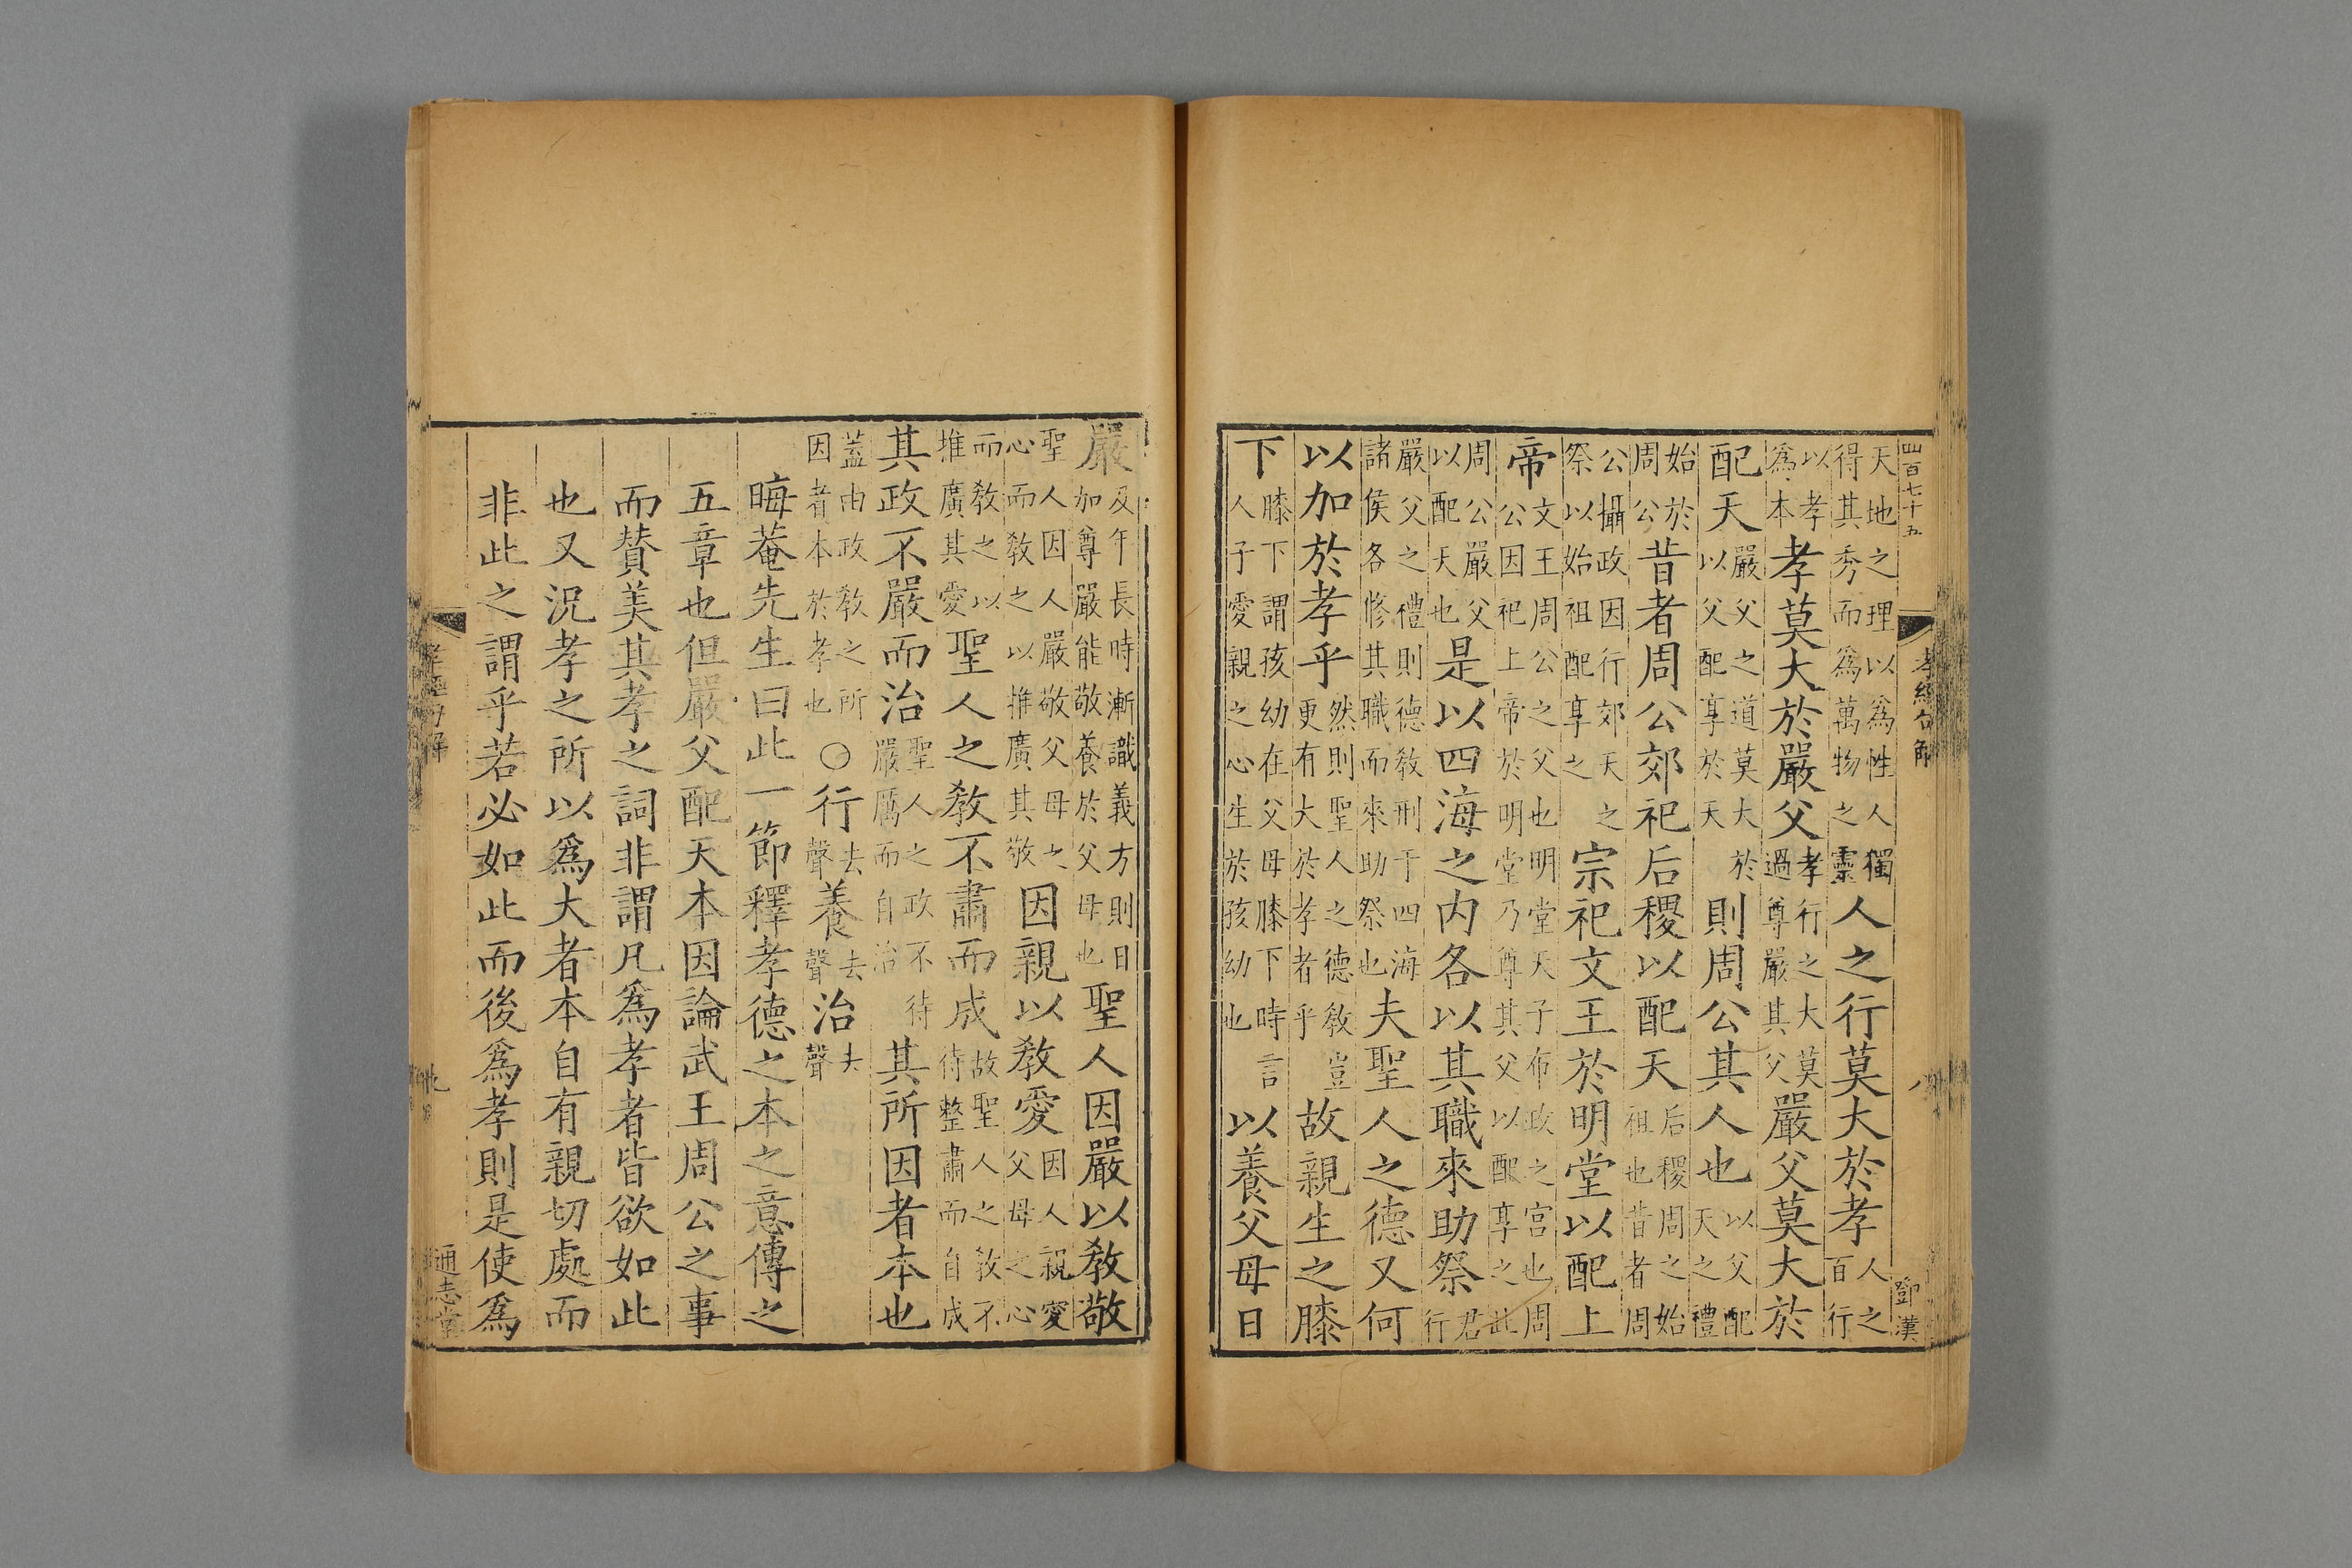 四百七十五
天地之理以爲性人獨
得其秀而爲萬物之靈人之行莫大於孝人之
百行
以孝
爲本孝莫大於嚴父孝行之大莫
過尊嚴其父嚴父莫大於
配天嚴父之道莫大於
以父配享於天則周公其人也以父配
天之禮
始於
周公昔者周公郊祀后稷以配天后稷周之始
祖也昔者周
公攝政因行郊天之
祭以始祖配享之宗祀文王於明堂以配上
帝文王周公之父也明堂天子布政之宮也周
公因祀上帝於明堂乃尊其父以配享之此
周公嚴父
以配天也是以四海之内各以其職來助祭君
行
嚴父之禮則德教刑于四海
諸侯各修其職而來助祭也夫聖人之德又何
以加於孝乎然則聖人之德教豈
更有大於孝者乎故親生之膝
下膝下謂孩幼在父母膝下時言
人子愛親之心生於孩幼也以養父母日
孝經句解
八
鄧漢
嚴及年長時漸識義方則日
加尊嚴能敬養於父母也聖人因嚴以教敬
聖人因人嚴敬父母之
心而教之以推廣其敬因親以教愛因人親愛
父母之心
而教之以
推廣其愛聖人之教不肅而成故聖人之教不
待整肅而自成
其政不嚴而治聖人之政不待
嚴厲而自治其所因者本也
蓋由政教之所
因者本於孝也○行去聲養去聲治去聲
晦菴先生曰此一節釋孝德之本之意傳之
五章也但嚴父配天本因論武王周公之事
而賛美其孝之詞非謂凡爲孝者皆欲如此
也又況孝之所以爲大者本自有親切處而
非此之謂乎若必如此而後爲孝則是使爲
九
通志堂